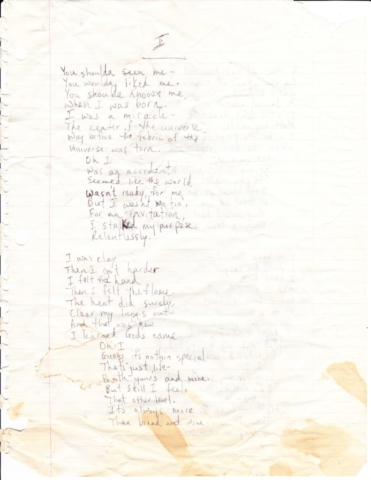 I
You shoulda seen me -
You woulda liked me.
You shoulda known me,
When I was born.
I was a miracle -
The center of the universe,
Way before the fabric of the
Universe was torn.
Oh I
Was an accident
Seemed like the world
Wasn't ready for me
But I wasn't waitin'
For an invitation,
I stalked my purpose
Relentlessly.
I was clay
Then I got harder
I felt the hand
Then I felt the flame
The heat did surely
Clear my lungs out
And that was how
I learned God's name
Oh I
Guess it's nothin special
That's just life -
Both yours and mine.
But still I feel
That other level.
It's always more
Than bread and wine